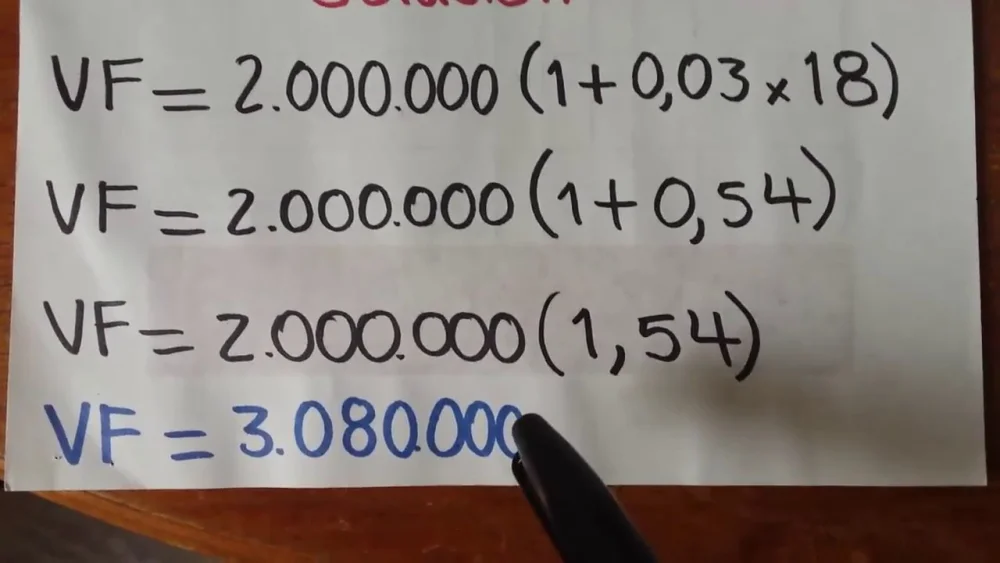 VF = 2.000.000 (1 + 0,03 × 18)
VF = 2.000.000 (1 + 0,54)
VF = 2.000.000 (1,54)
VF = 3.080.000